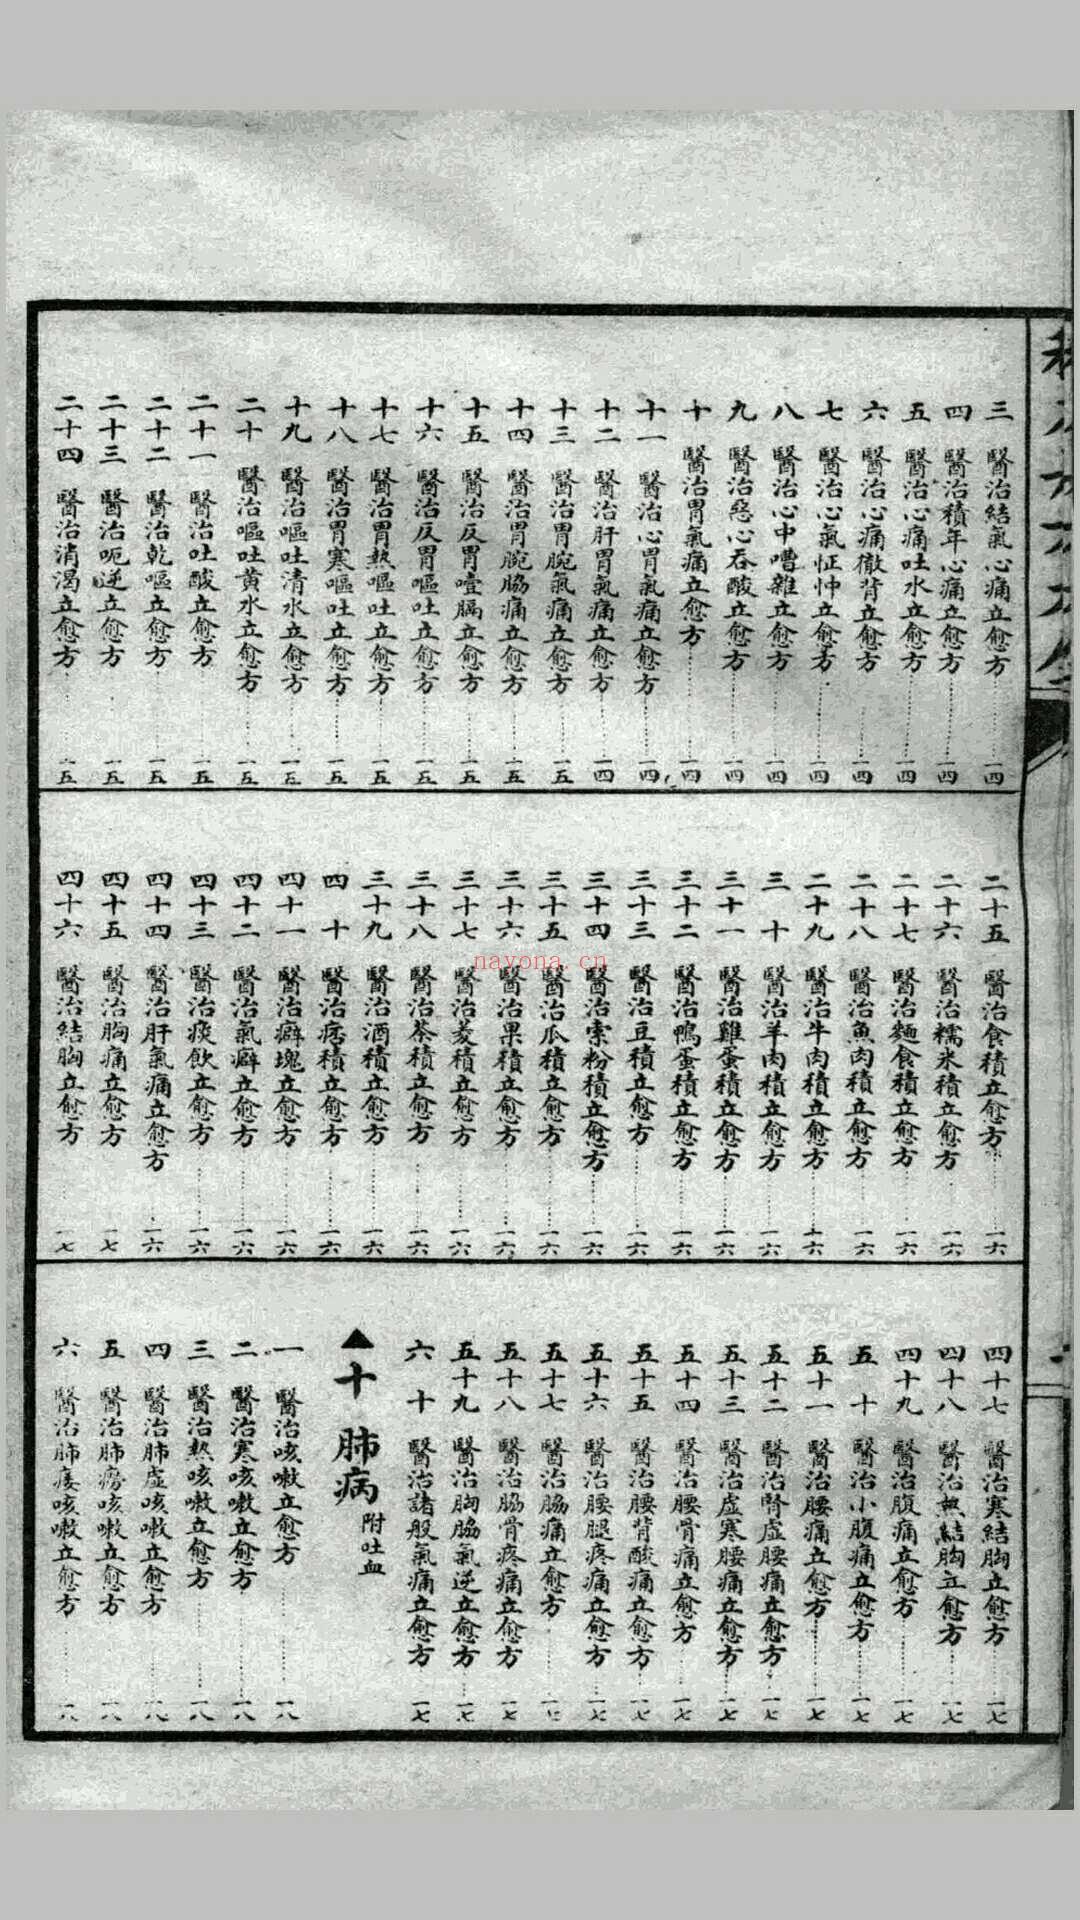 三 醫治結氣心痛立愈方 一四
四 醫治積年心痛立愈方 一四
五 醫治心痛吐水立愈方 一四
六 醫治心痛徹背立愈方 一四
七 醫治心氣怔忡立愈方 一四
八 醫治心中嘈雜立愈方 一四
九 醫治惡心吞酸立愈方 一四
十 醫治胃氣痛立愈方 一四
十一 醫治心胃氣痛立愈方 一四
十二 醫治肝胃氣痛立愈方 一四
十三 醫治胃脘氣痛立愈方 一五
十四 醫治胃脘脇痛立愈方 一五
十五 醫治反胃噎膈立愈方 一五
十六 醫治反胃嘔吐立愈方 一五
十七 醫治胃熱嘔吐立愈方 一五
十八 醫治胃寒嘔吐立愈方 一五
十九 醫治嘔吐清水立愈方 一五
二十 醫治嘔吐黃水立愈方 一五
二十一 醫治吐酸立愈方 一五
二十二 醫治乾嘔立愈方 一五
二十三 醫治呃逆立愈方 一五
二十四 醫治消渴立愈方 一五
二十五 醫治食積立愈方 一六
二十六 醫治糯米積立愈方 一六
二十七 醫治麵食積立愈方 一六
二十八 醫治魚肉積立愈方 一六
二十九 醫治牛肉積立愈方 一六
三十 醫治羊肉積立愈方 一六
三十一 醫治雞蛋積立愈方 一六
三十二 醫治鴨蛋積立愈方 一六
三十三 醫治豆積立愈方 一六
三十四 醫治索粉積立愈方 一六
三十五 醫治瓜積立愈方 一六
三十六 醫治果積立愈方 一六
三十七 醫治菱積立愈方 一六
三十八 醫治茶積立愈方 一六
三十九 醫治酒積立愈方 一六
四十 醫治痞積立愈方 一六
四十一 醫治癖塊立愈方 一六
四十二 醫治氣癖立愈方 一六
四十三 醫治痰飲立愈方 一六
四十四 醫治肝氣痛立愈方 一六
四十五 醫治胸痛立愈方 一七
四十六 醫治結胸立愈方 一七
四十七 醫治寒結胸立愈方 一七
四十八 醫治熱結胸立愈方 一七
四十九 醫治腹痛立愈方 一七
五十 醫治小腹痛立愈方 一七
五十一 醫治腰痛立愈方 一七
五十二 醫治腎虛腰痛立愈方 一七
五十三 醫治虛寒腰痛立愈方 一七
五十四 醫治腰骨痛立愈方 一七
五十五 醫治腰背酸痛立愈方 一七
五十六 醫治腰腿疼痛立愈方 一七
五十七 醫治脇痛立愈方 一七
五十八 醫治脇骨疼痛立愈方 一七
五十九 醫治胸脇氣逆立愈方 一七
六十 醫治諸般氣痛立愈方 一七
▲十 肺病 附吐血
一 醫治咳嗽立愈方 一八
二 醫治寒咳嗽立愈方 一八
三 醫治熱咳嗽立愈方 一八
四 醫治肺虛咳嗽立愈方 一八
五 醫治肺癆咳嗽立愈方 一八
六 醫治肺痿咳嗽立愈方 一八
nayona.cn